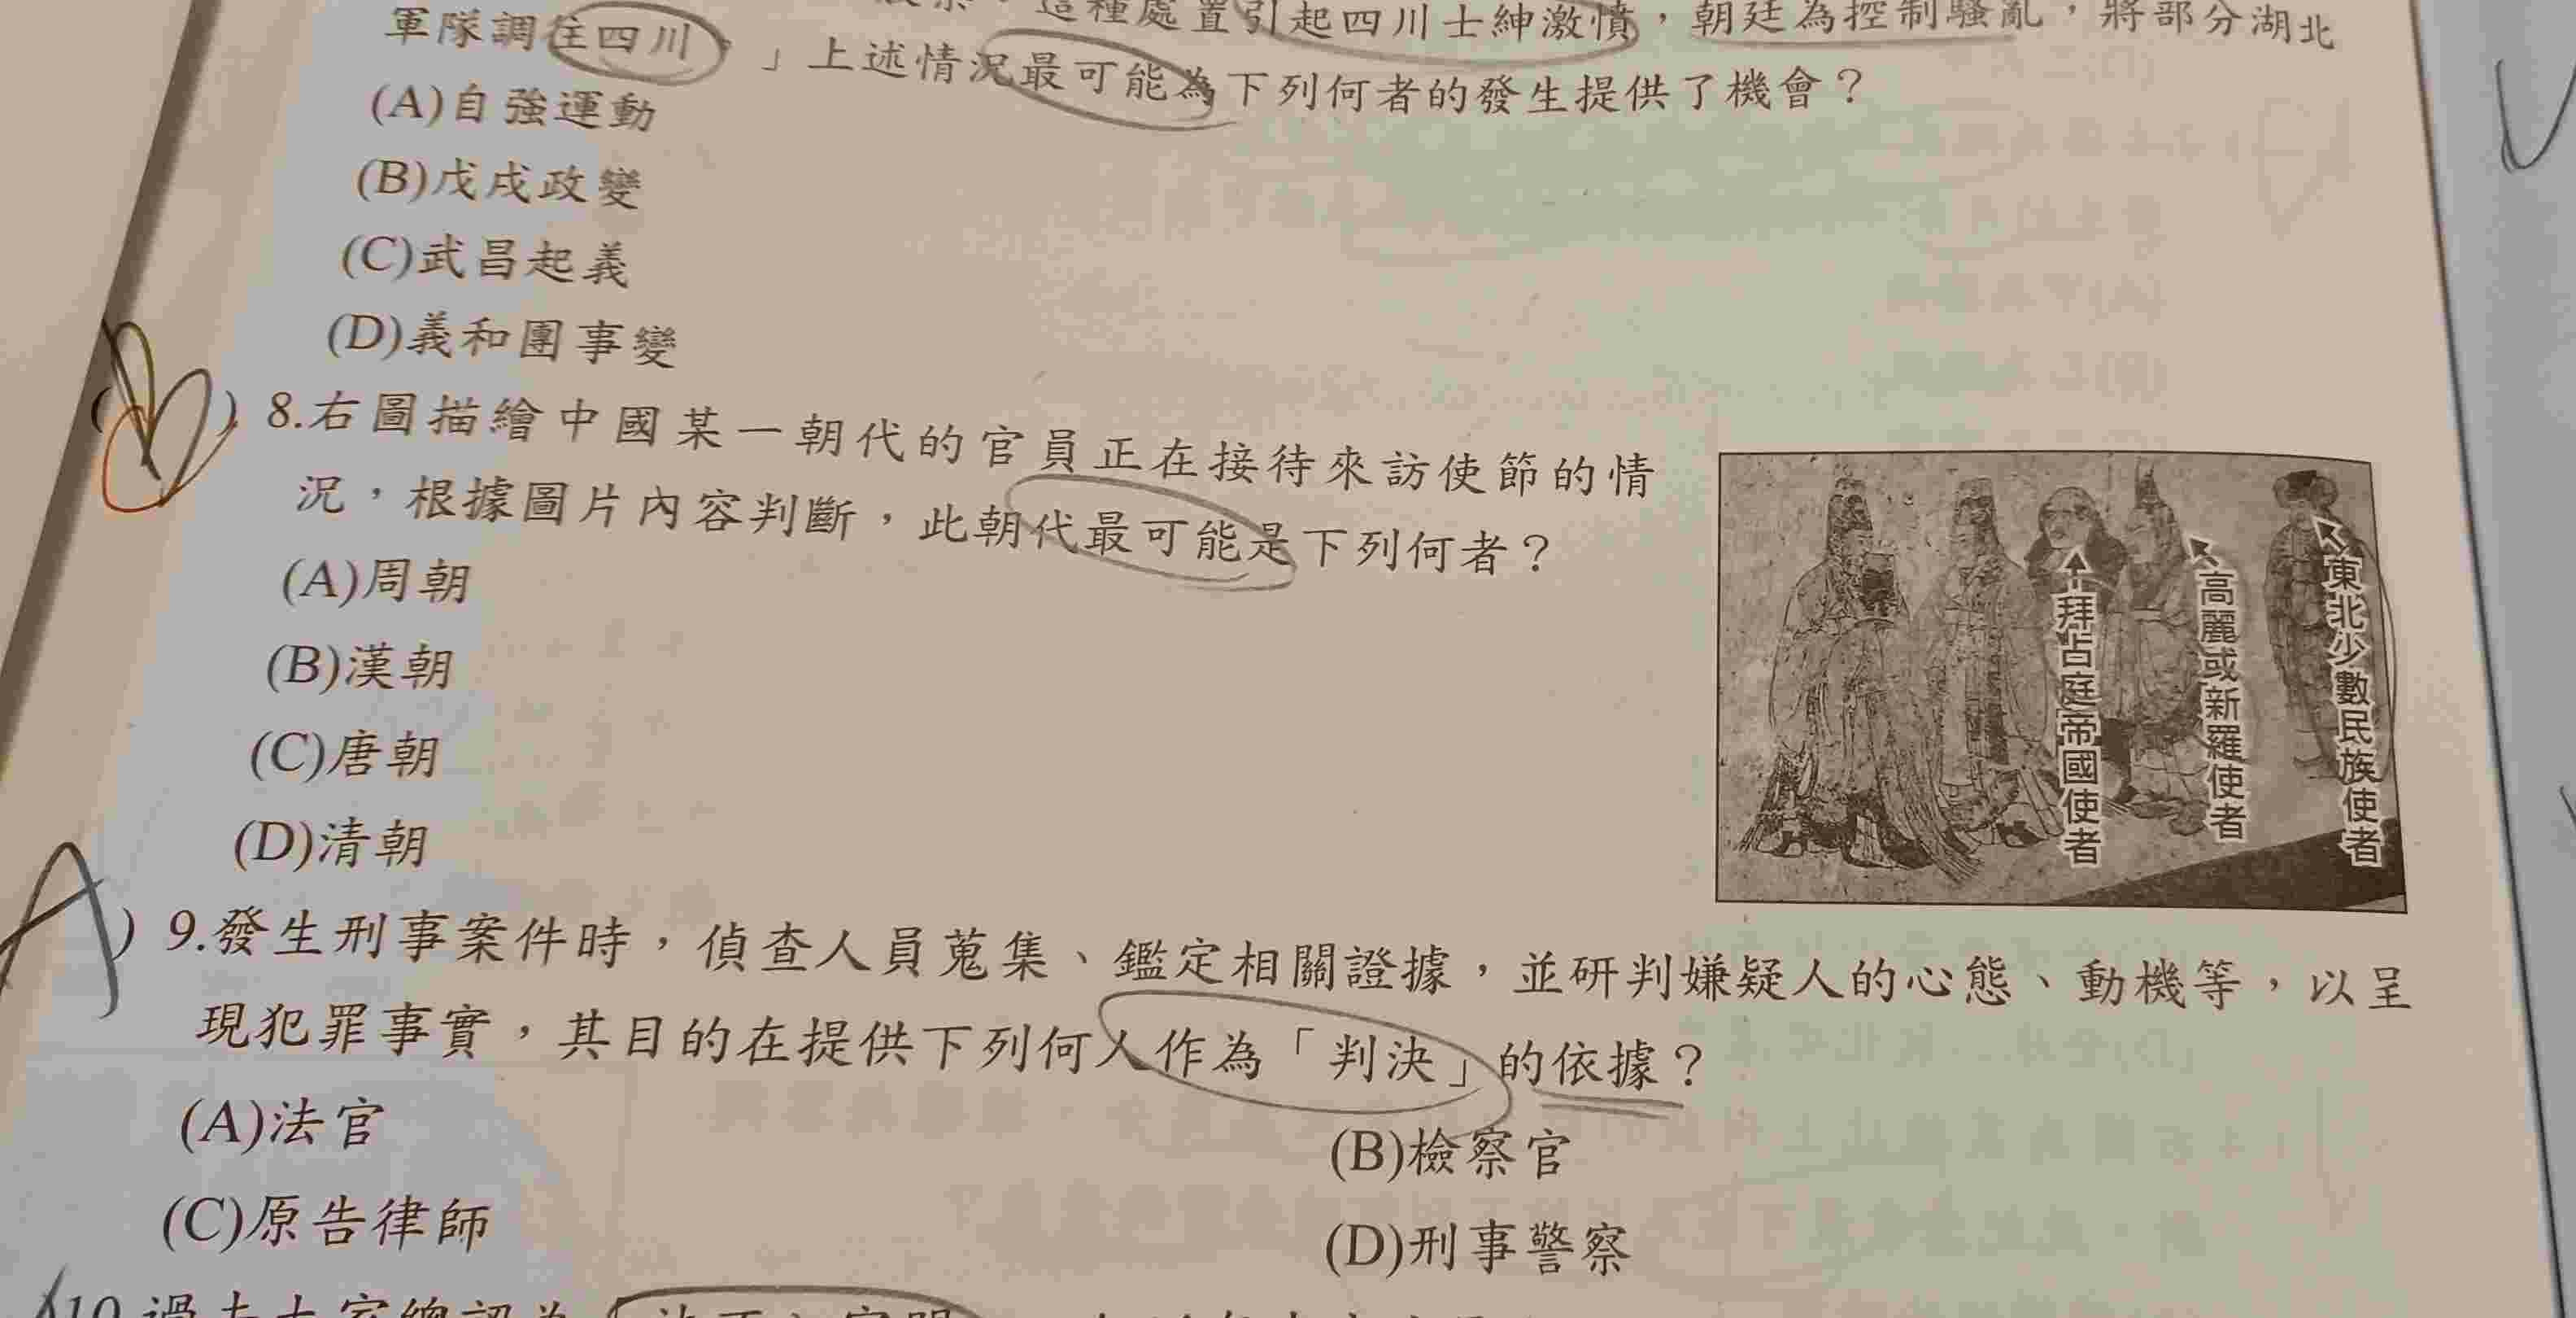 這種處置引起四川士紳激憤，朝廷為控制騷亂，將部分湖北
軍隊調往四川。」上述情況最可能為下列何者的發生提供了機會？
(A)自強運動
(B)戊戌政變
(C)武昌起義
(D)義和團事變
(B) 8.右圖描繪中國某一朝代的官員正在接待來訪使節的情
況，根據圖片內容判斷，此朝代最可能是下列何者？
(A)周朝
(B)漢朝
(C)唐朝
(D)清朝
拜占庭帝國使者
高麗或新羅使者
東北少數民族使者
A ) 9.發生刑事案件時，偵查人員蒐集、鑑定相關證據，並研判嫌疑人的心態、動機等，以呈
現犯罪事實，其目的在提供下列何人作為「判決」的依據？
(A)法官
(B)檢察官
(C)原告律師
(D)刑事警察
10.